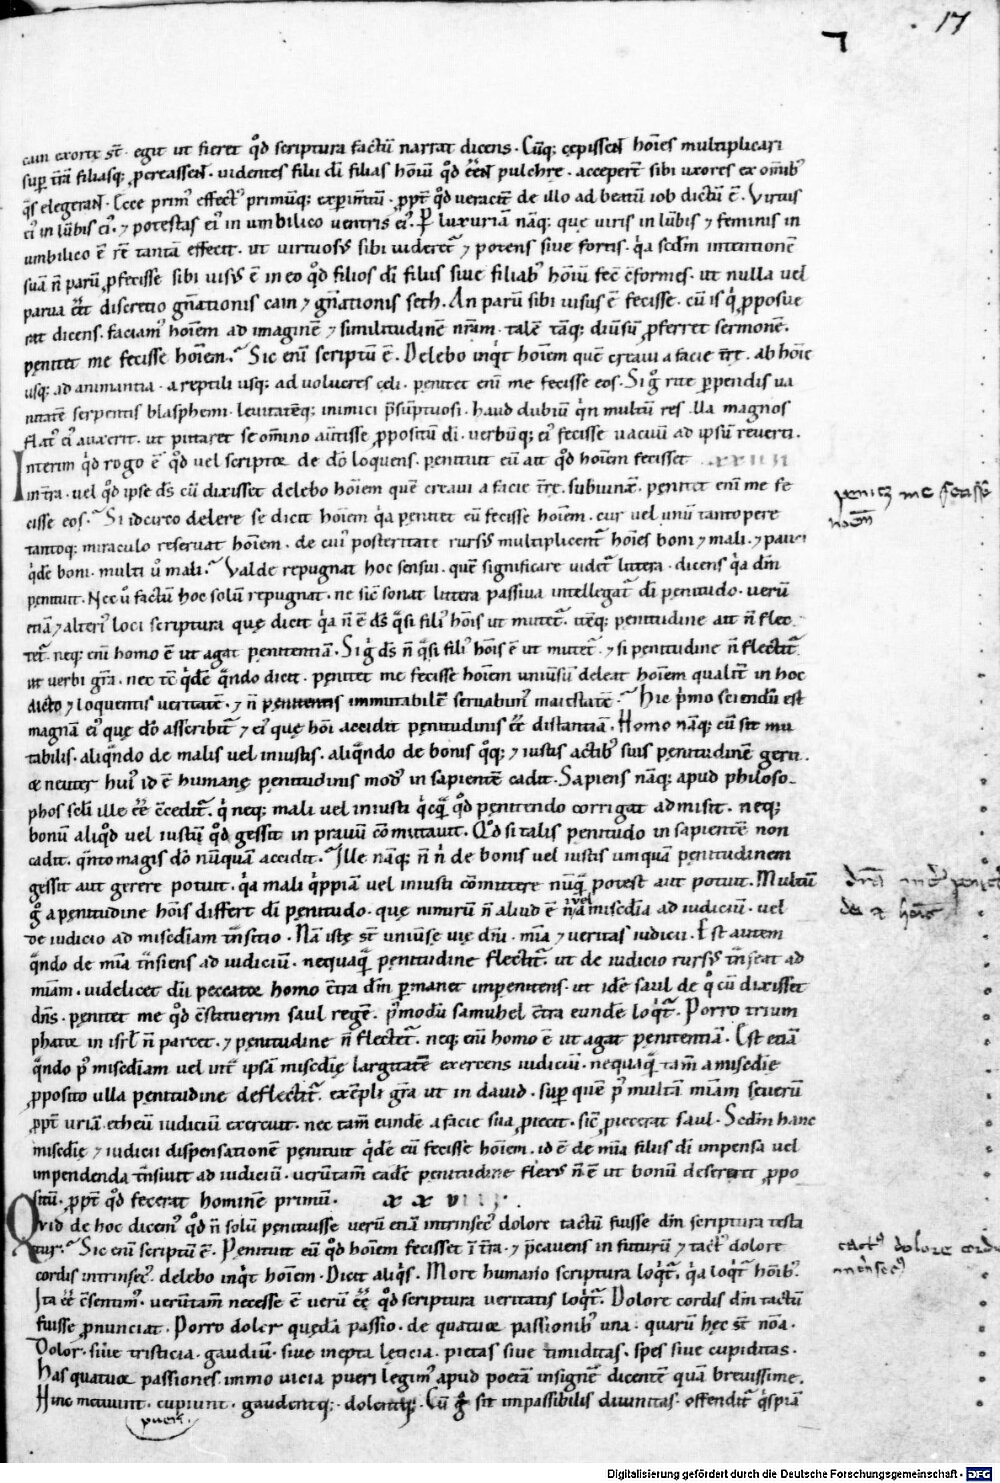 17
cain exortę st̄. egit ut fieret qd̊ scriptura factū narrat dicens. Cūq; cepissent hoīes multiplicari
sup t̄rā filiasq; pcreassent. uidentes filii dī filias hoīū qd̊ eēnt pulchrę. acceper̄t sibi uxores ex om̄ib'
q̄s elegerant. Ecce prim' effect' primūq; experim̄tū. ppt̄ qd̊ veracit̄ de illo ad beatū iob dictū ē. Virtus
ei' in lūbis ei'. ⁊ potestas ei' in umbilico ventris ei'. P luxuriā nāq; que viris in lūbis ⁊ feminis in
umbilico ē rē tantā effecit. ut virtuosus sibi uideret' ⁊ potens sive fortis. q̇a scdm̄ intentionē
suā n̄ parū pfecisse sibi uisus ē in eo qd̊ filios dī filiis sive filiab' hoīū fec̄ c̄formes. ut nulla vel
parua eēt discretio gn̄ationis cain ⁊ gn̄ationis seth. An parū sibi uisus ē fecisse. cū is q̇ pposue
rat dicens. faciam' hoīem ad imaginē ⁊ similitudinē nr̄am. talē tāq; diūsū pferret sermonē.
penitet me fecisse hoīem. Sic eni scriptū ē. Delebo inq̇t hoīem quē creaui a facie t̄rę. ab hoīe
usq; ad animantia. a reptili usq; ad volucres cęli. penitet eni me fecisse eos. Sig̊ rite ppendis ua
nitatē serpentis blasphemi. leuitatēq; inimici p̄sūptuosi. haud dubiū q̇n multū res. Ua magnos
flat' ei' auxerit. ut putaret se om̄ino auertisse ppositū dī. verbūq; ei' fecisse vacuū ad ipsū reverti.
Interim q̇d rogo ē qd̊ vel scriptor de do loquens. penituit eū ait qd̊ hoīem fecisset
in t̄ra. vel qd̊ ipse ds̄ cū dixisset delebo hoīem quē creaui a facie t̄rę. subiunx̄. penitet eni me fe
penitet me fecisse
hoīem
cisse eos. Si idcirco delere se dicit hoīem q̇a penitet eū fecisse hoīem. cur vel unū tantopere
tantoq; miraculo reservat hoīem. de cui' posteritate rursus multiplicent' hoīes boni ⁊ mali. ⁊ pauci
q̇dē boni. multi ů mali. Valde repugnat hoc sensui. quē significare videt' littera. dicens q̇a dm̄
penituit. Nec ů factū hoc solū repugnat. ne sic̄ sonat littera passiva intellegat' dī penitudo. verū
etiā ⁊ alteri' loci scriptura que dicit q̇a n̄ ē ds̄ q̇si fili' hoīs ut mutet'. itēq; penitudine ait n̄ flec
tet'. neq; eni homo ē ut agat penitentiā. Sig̊ ds̄ n̄ q̇si fili' hoīs ē ut mutet'. ⁊ si penitudine n̄ flectit'
ut verbi gr̄a. nec tc̄ q̇dē q̇ndo dicit. penitet me fecisse hoīem uniūsū deleat hoīem qualit̄ in hoc
dicto ⁊ loquentis veritatē. ⁊ n̄ penitentis immutabilē servabim' maiestatē. Hic ṗmo sciendū est
magnā ei' quę do asscribit' ⁊ ei' quę hoī accidit penitudinis eē distantiā. Homo nāq; cū sit mu
tabilis. aliq̇ndo de malis vel iniustis. aliq̇ndo de bonis q̊q; ⁊ iustis actib' suis penitudinē gerit.
& neuter hui' id ē humanę penitudinis mod' in sapientē cadit. Sapiens nāq; apud philoso-
phos soli ille eē c̄cedit'. q̇ neq; mali vel iniusti q̇cq̄ qd̊ penitendo corrigat admisit. neq;
bonū aliq̊d vel iustū qd̊ gessit in pravū cōmutavit. Qd̊ si talis penitudo in sapientē non
cadit. q̇nto magis do nūquā accidit. Ille nāq; n̄ n̄ de bonis vel iustis umquā penitudinem
gessit aut gerere potuit. q̇a mali q̇ppiā vel iniusti cōmittere nūq̄ potest aut potuit. Multū
g̊ a penitudine hoīs differt dī penitudo. que nimirū n̄ aliud ē n̄ a misc̄dia ad iudiciū. vel
vel
de iudicio ad misc̄diam tn̄sitio. Nā istę st̄ uniūsę vię dn̄i. mīa ⁊ veritas iudicii. Est autem
q̇ndo de mīa tn̄siens ad iudiciū. nequaq̄ penitudine flectit'. ut de iudicio rursus tn̄seat ad
mīam. videlicet dū peccator homo c̄tra dm̄ pmanet impenitens. ut idē saul de q̊ cū dixisset
dn̄s. penitet me qd̊ c̄stituerim saul regē. p̄modū samuhel c̄tra eundē loq̇t'. Porro trium
phator in isrl̄ n̄ parcet. ⁊ penitudine n̄ flectet'. neq; eni homo ē ut agat penitentiā. Est etiā
q̇ndo p' misc̄diam vel int̄ ipsā misc̄dię largitatē exercens iudiciū. nequaq̄ tam̄ a misc̄dię
pposito ulla penitudine deflectit'. exēpli gr̄a ut in david. sup quē p' multā mīam severū
ppt̄ uriā etheū iudiciū exercuit. nec tam̄ eundē a facie sua piecit. sic̄ piecerat saul. Scdm̄ hanc
misc̄dię ⁊ iudicii dispensationē penituit q̇dē eū fecisse hoīem. id ē de mīa filiis dī impensa vel
impendenda tn̄siuit ad iudiciū. verūtam̄ eadē penitudine flexus n̄ ē ut bonū desereret ppo
situ. ppt̄ qd̊ fecerat hominē primū.
Quid de hoc dicem' qd̊ n̄ solū penituisse verū etiā intrinsec' dolore tactū fuisse dm̄ scriptura testa
tur. Sic eni scriptū ē. Penituit eū qd̊ hoīem fecisset ī t̄ra. ⁊ p̄cavens in futurū ⁊ tact' dolore
tact' dolore cordis
intrīsec'
cordis intrinsec'. delebo inq̇t hoīem. Dicit aliq̇s. More humano scriptura loq̇t'. q̇a loq̇t' hoīb'.
Ita eē c̄sentim'. verūtam̄ necesse ē verū eē qd̊ scriptura veritatis loq̇t'. Dolore cordis dm̄ tactū
fuisse pnunciat. Porro dolor quędā passio. de quatuor passionib' una. quarū hęc st̄ noīa.
Dolor. sive tristicia. gaudiū. sive inepta lęticia. pietas sive timiditas. spes sive cupiditas.
Has quatuor passiones. immo vicia pueri legim' apud poetā insignē dicentē quā brevissime.
Hinc metuunt. cupiunt. gaudentq;. dolentq;. Cū g̊ sit impassibilis divinitas. offendit' q̇spiā
pueri
Digitalisierung gefördert durch die Deutsche Forschungsgemeinschaft - DFG